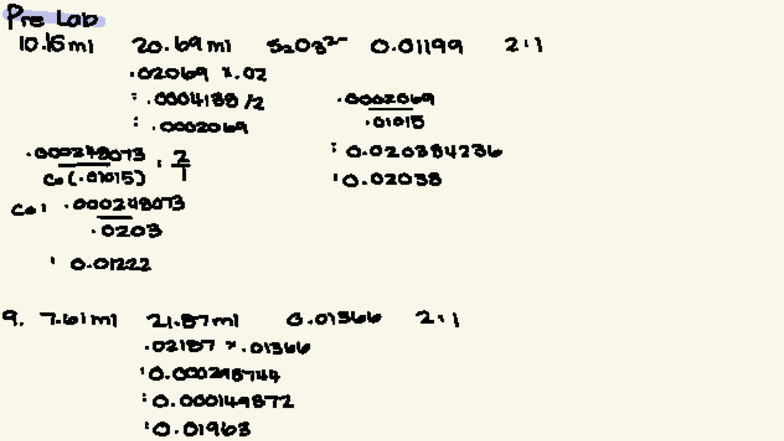 Pre Lab
10.15ml 20.69ml S2O3²⁻ 0.01199 2:1
.02069 x .02
= .0004138 /2
= .0002069
.0002069
.01015
= 0.020384236
= 0.02038
.000248073 = 2
Ce(.01015) 1
Ce = .000248073
.0203
= 0.01222
9. 7.61ml 21.87ml 0.01366 2:1
.02187 x .01366
= 0.000298744
= 0.000149372
= 0.01963